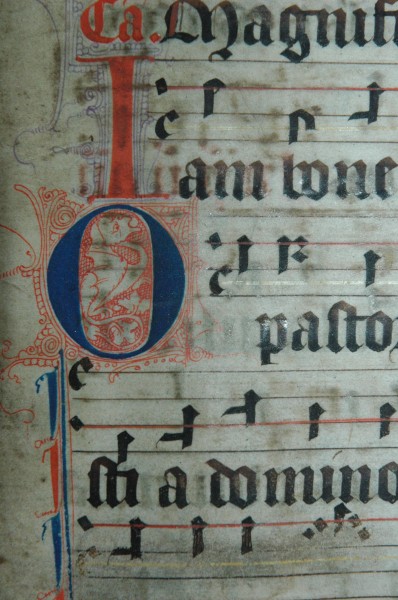 Ca. Magnifi
Iam bone
O pasto
sti a domino